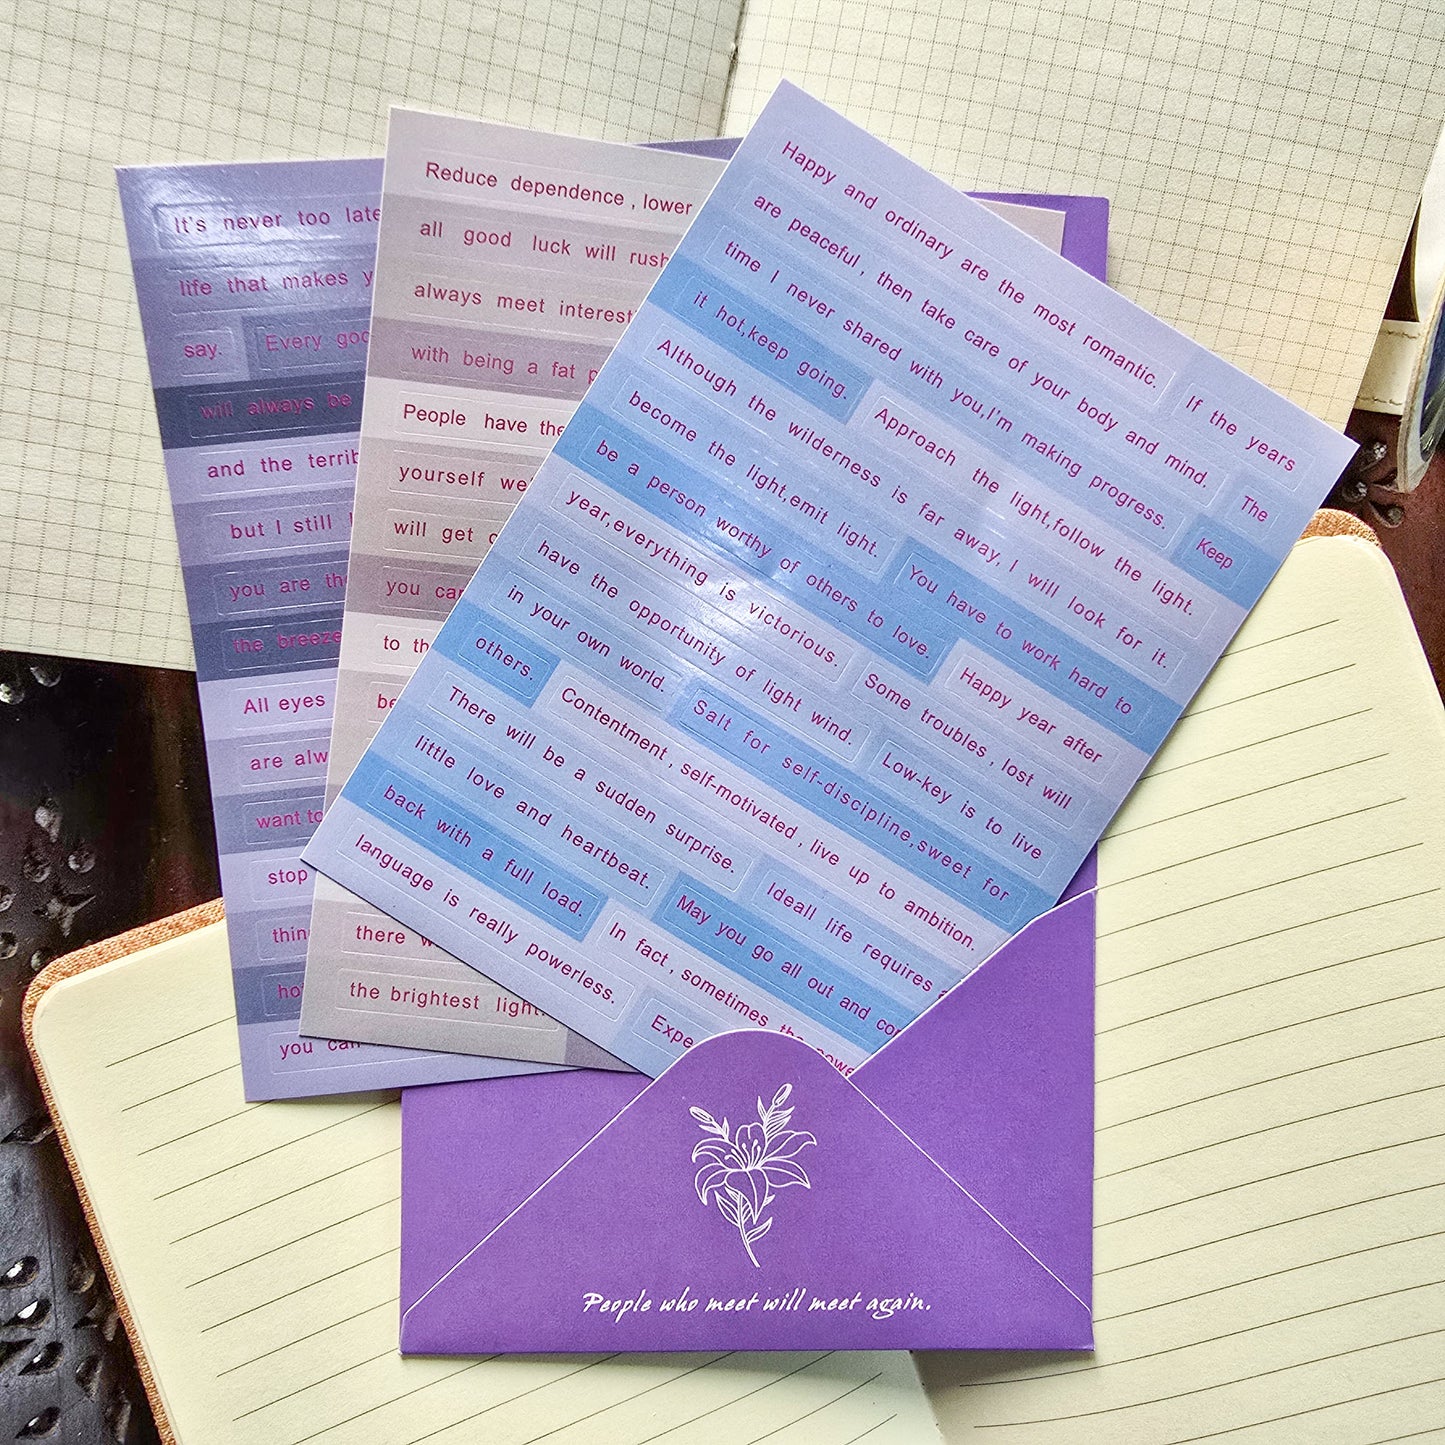 It's never too late
life that makes
say. Every
will always be
and the
but I still
you are
the breeze
All eyes
are
want to
stop

you
Reduce dependence , lower
all good luck will rush
always meet
with being a fat
People have the
yourself
will get
you
to

there
the brightest light.
Happy and ordinary are the most romantic. If the years
are peaceful , then take care of your body and mind. The
time I never shared with you,I'm making progress. Keep
it hot,keep going. Approach the light,follow the light.
Although the wilderness is far away, I will look for it.
become the light,emit light. You have to work hard to
be a person worthy of others to love. Happy year after
year,everything is victorious. Some troubles , lost will
have the opportunity of light wind. Low-key is to live
in your own world. Salt for self-discipline,sweet for
others. Contentment , self-motivated , live up to ambition.
There will be a sudden surprise. Ideall life requires
little love and heartbeat. May you go all out and
back with a full load. In fact , sometimes the
language is really powerless.
People who meet will meet again.